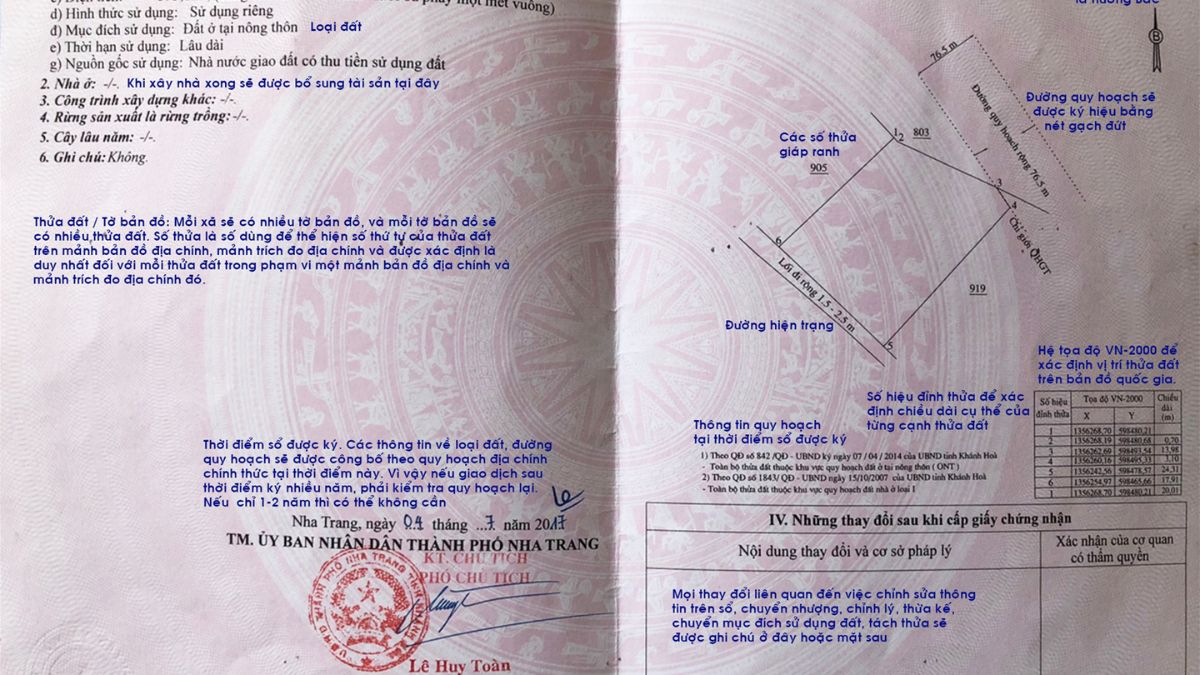 một mét vuông)
d) Hình thức sử dụng: Sử dụng riêng
đ) Mục đích sử dụng: Đất ở tại nông thôn Loại đất
e) Thời hạn sử dụng: Lâu dài
g) Nguồn gốc sử dụng: Nhà nước giao đất có thu tiền sử dụng đất
2. Nhà ở: -/-. Khi xây nhà xong sẽ được bổ sung tài sản tại đây
3. Công trình xây dựng khác: -/-.
4. Rừng sản xuất là rừng trồng: -/-.
5. Cây lâu năm: -/-.
6. Ghi chú: Không.
Thửa đất / Tờ bản đồ: Mỗi xã sẽ có nhiều tờ bản đồ, và mỗi tờ bản đồ sẽ
có nhiều,thửa đất. Số thửa là số dùng để thể hiện số thứ tự của thửa đất
trên mảnh bản đồ địa chính, mảnh trích đo địa chính và được xác định là
duy nhất đối với mỗi thửa đất trong phạm vi một mảnh bản đồ địa chính và
mảnh trích đo địa chính đó.
Thời điểm sổ được ký. Các thông tin về loại đất, đường
quy hoạch sẽ được công bố theo quy hoạch địa chính
chính thức tại thời điểm này. Vì vậy nếu giao dịch sau
thời điểm ký nhiều năm, phải kiểm tra quy hoạch lại.
Nếu chỉ 1-2 năm thì có thể không cần
Nha Trang, ngày 04 tháng ..7 năm 2017
TM. ỦY BAN NHÂN DÂN THÀNH PHỐ NHA TRANG
KT. CHỦ TỊCH
PHÓ CHỦ TỊCH
Lê Huy Toàn
là hướng Bắc
B
76.5 m
Đường quy hoạch rộng 76.5 m
Đường quy hoạch sẽ
được ký hiệu bằng
nét gạch đứt
Các số thửa
giáp ranh
905
1
2
803
3
4
Chỉ giới QHGT
6
Lối đi rộng 1.5 - 2.5 m
919
5
Đường hiện trạng
Hệ tọa độ VN-2000 để
xác định vị trí thửa đất
trên bản đồ quốc gia.
Số hiệu đỉnh thửa để xác
định chiều dài cụ thể của
từng cạnh thửa đất
Số hiệu đỉnh thửa Tọa độ VN-2000 Chiều dài (m)
X Y
1 1356268,70 598480,21
2 1356268.19 598480.68 0,70
3 1356262,69 598493.54 13,98
4 1356260,16 598495.33 3.10
5 1356242.56 598478.57 24,31
6 1356254,97 598465.66 17,91
1 1356268.70 598480.21 20,01
Thông tin quy hoạch
tại thời điểm sổ được ký
1) Theo QĐ số 842 /QĐ - UBND ký ngày 07 / 04 / 2014 của UBND tỉnh Khánh Hoà
- Toàn bộ thửa đất thuộc khu vực quy hoạch đất ở tại nông thôn ( ONT )
2) Theo QĐ số 1843/ QĐ - UBND ngày 15/10/2007 của UBND tỉnh Khánh Hoà
- Toàn bộ thửa đất thuộc khu vực quy hoạch đất nhà ở loại I
IV. Những thay đổi sau khi cấp giấy chứng nhận
Nội dung thay đổi và cơ sở pháp lý
Xác nhận của cơ quan
có thẩm quyền
Mọi thay đổi liên quan đến việc chỉnh sửa thông
tin trên sổ, chuyển nhượng, chỉnh lý, thừa kế,
chuyển mục đích sử dụng đất, tách thửa sẽ
được ghi chú ở đây hoặc mặt sau